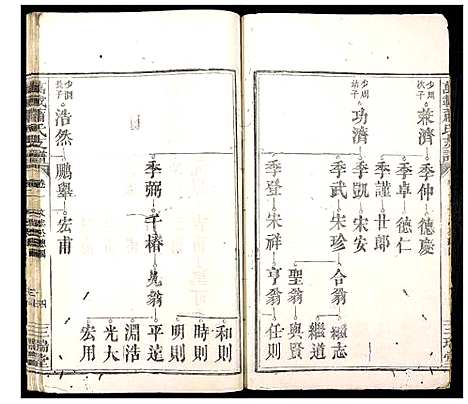 少周
次子
兼濟
季仲
德慶
季卓
德仁
季謹
廿郎
少周
幼子
功濟
季凱
宋安
季武
宋珍
合翁
繼志
繼道
聖翁
興賢
季登
宋祥
亨翁
任則
和則
時則
明則
季弼
千椿
晃翁
平遠
淵浩
光大
宏用
少潤
長子
浩然
鵬舉
宏甫
三瑞堂